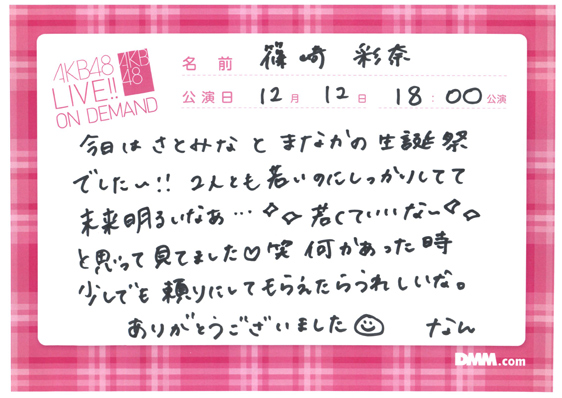 AKB48
LIVE!!
ON DEMAND
AKB
48
名前 篠崎 彩奈
公演日 12月 12日 18:00公演
今日は さとみな と まなかの 生誕祭
でした〜!! 2人とも 若いのにしっかりしてて
未来明るいなあ…✧✧ 若くていいな〜✧✧
と思って 見てました♡笑 何かあった時
少しでも 頼りにしてもらえたらうれしいな。
ありがとうございました☺ なん
DMM.com